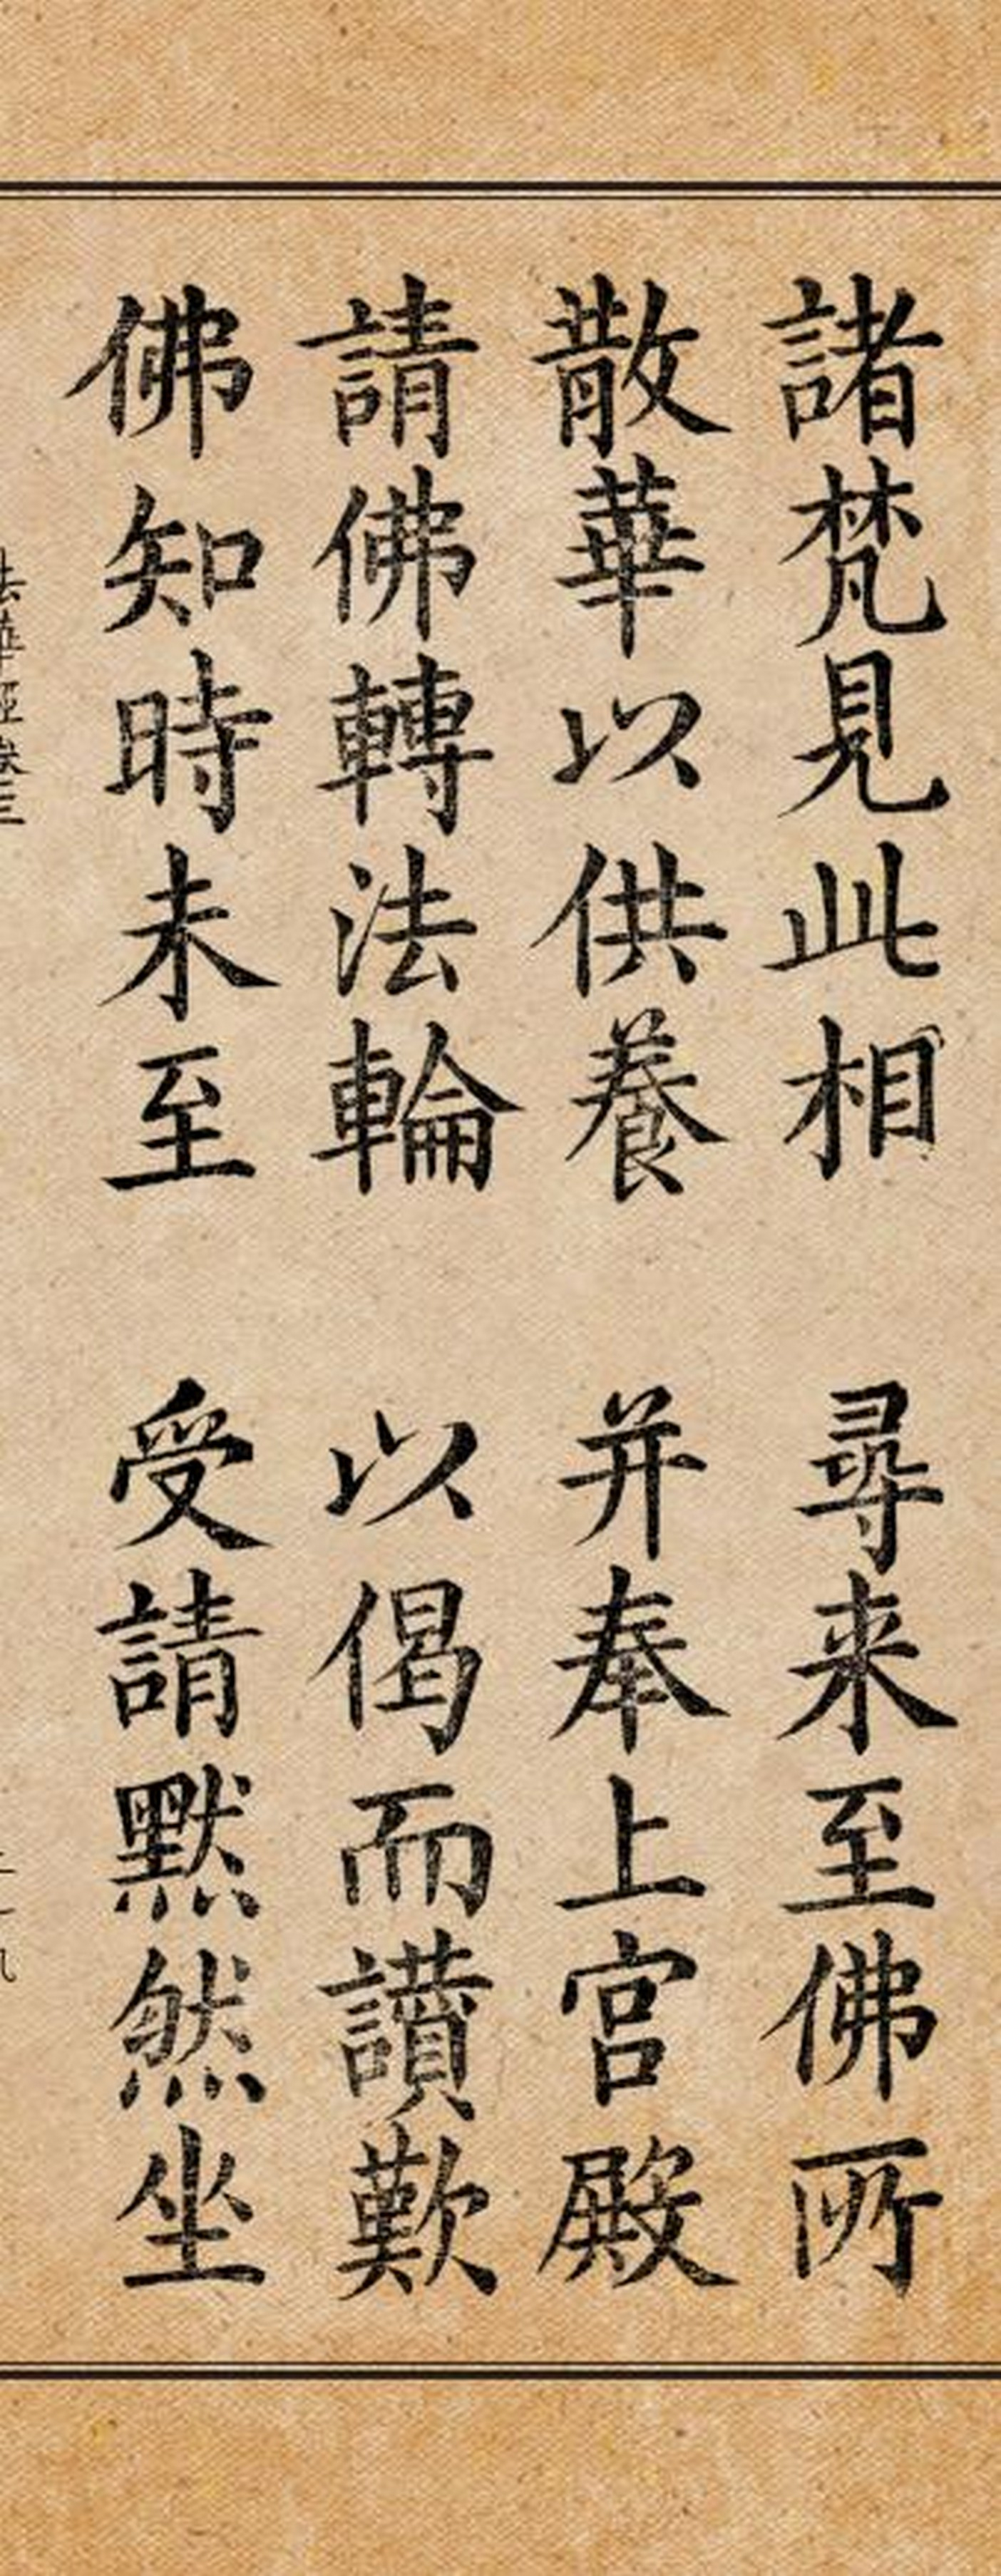 諸梵見此相　尋来至佛所
散華以供養　并奉上宮殿
請佛轉法輪　以偈而讚歎
佛知時未至　受請默然坐
法華經卷三